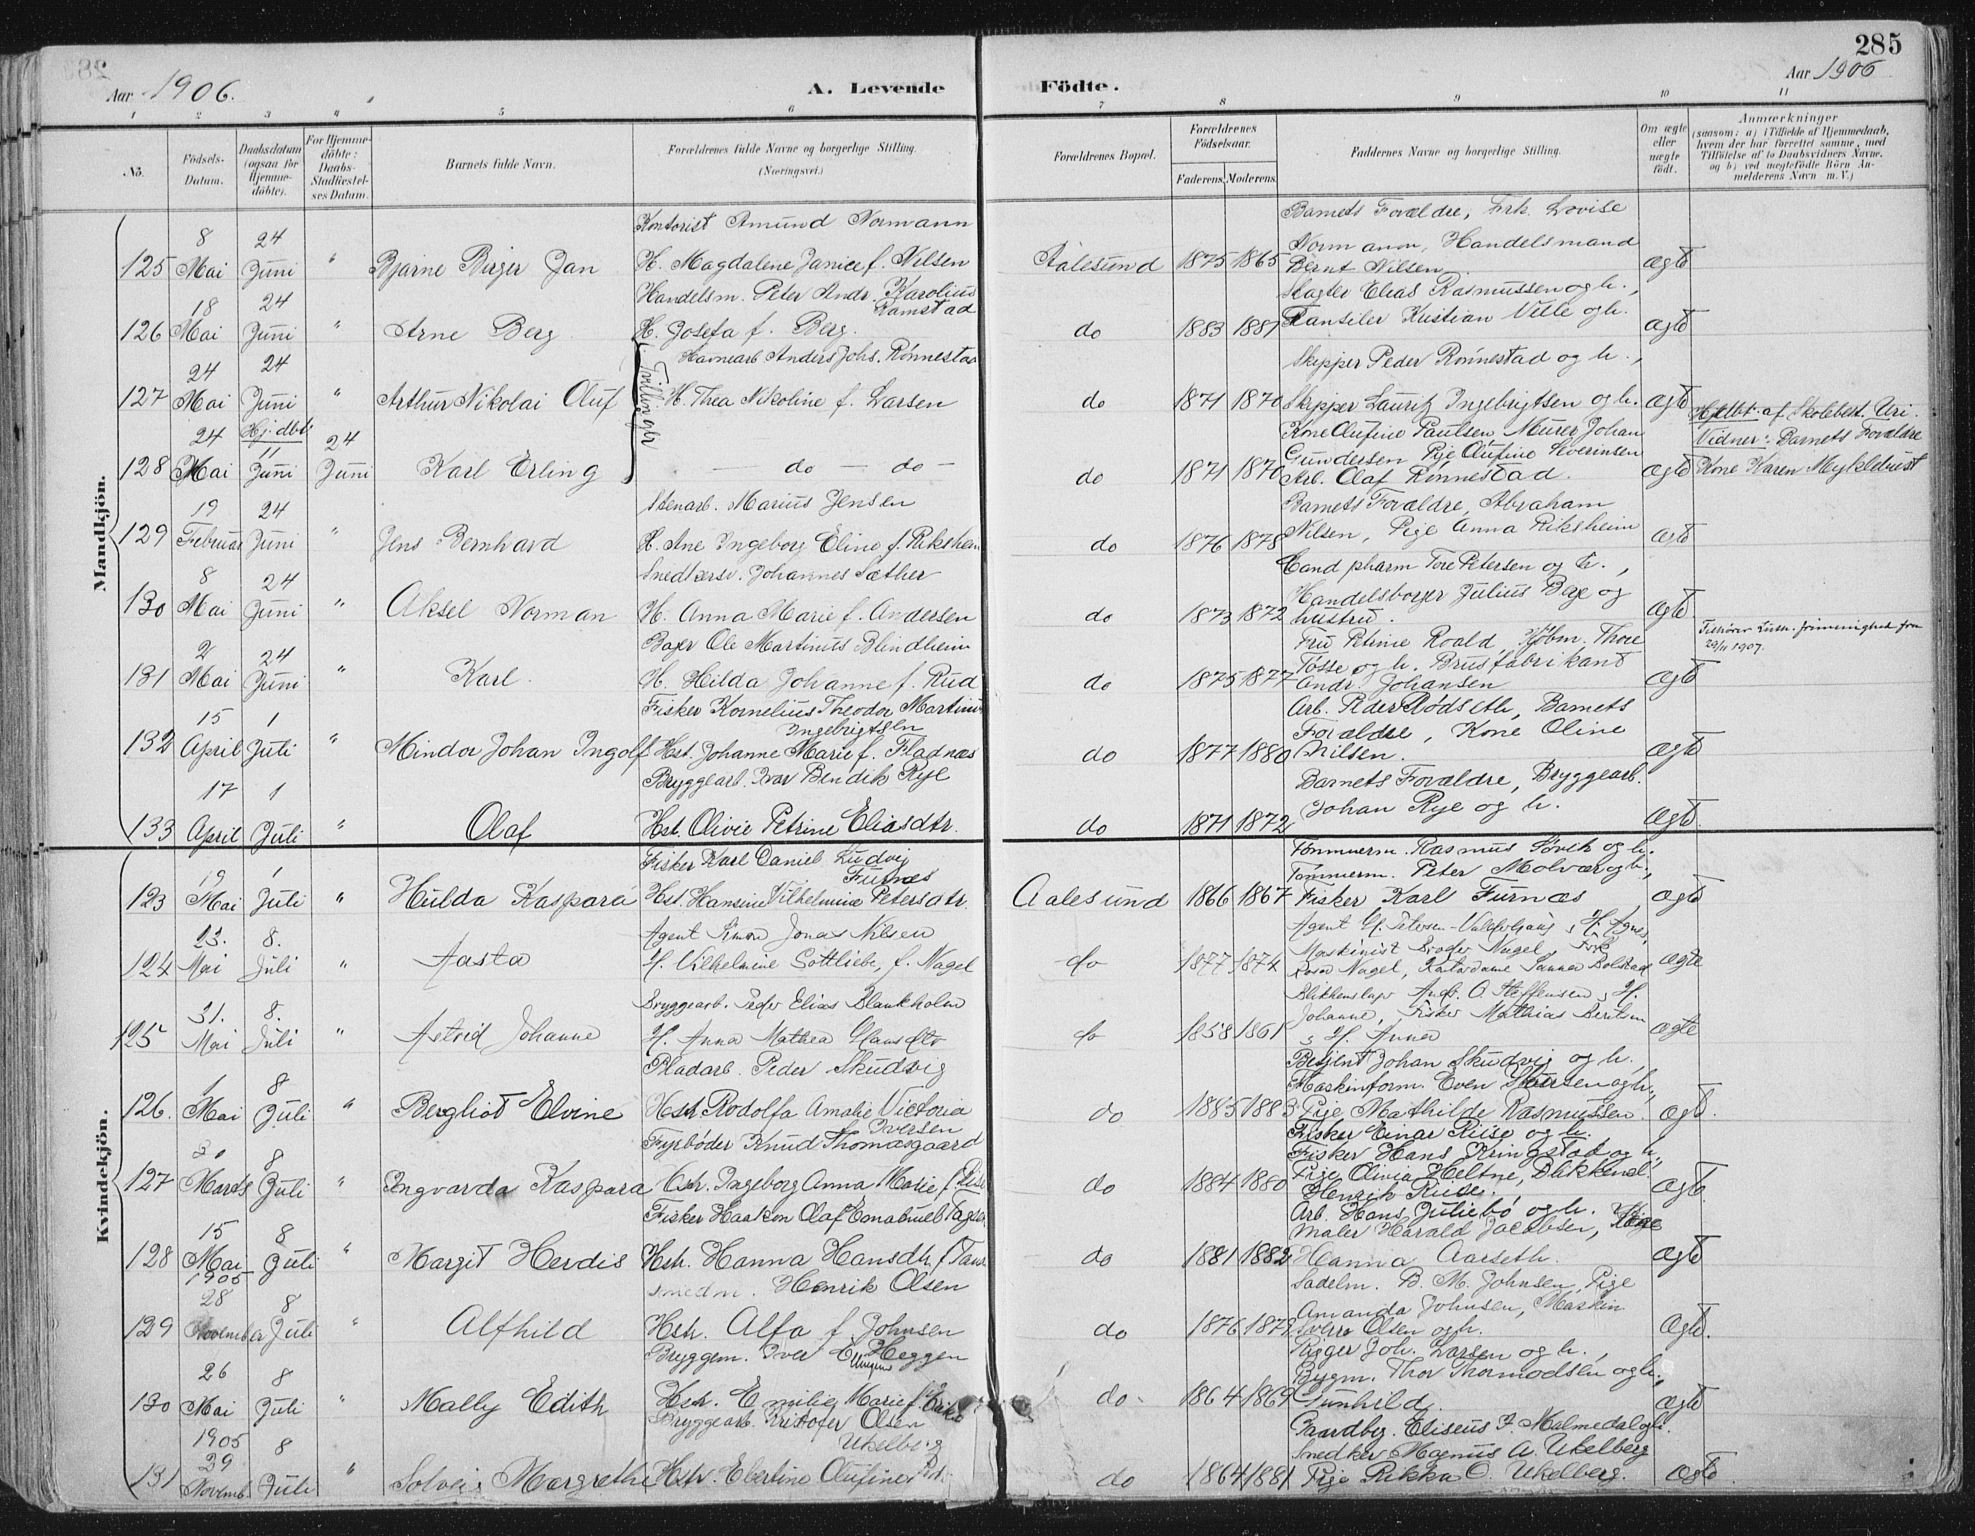 285
Aar 1906.
A. Levende Födte.
Aar 1906
1 2 3 4 5 6 7 8 9 10 11
No.
Födsels-Datum.
Daabsdatum (ogsaa for Hjemmedöbte).
For Hjemmedöbte: Daabs-Stadfæstelses Datum.
Barnets fulde Navn.
Forældrenes fulde Navne og borgerlige Stilling. (Næringsvei.)
Forældrenes Bopæl.
Forældrenes Födselsaar.
Faderens. Moderens.
Faddernes Navne og borgerlige Stilling.
Om ægte eller uægte födt.
Anmærkninger (saasom: a) i Tilfælde af Hjemmedaab, hvem der har forrettet samme, med Tilföielse af to Daabsvidners Navne, og b) ved uægtefödte Börn Anmelderens Navn m. V.)
Mandkjön.
125 8 Mai 24 Juni " Bjarne Birger Jan
Kontorist Amund Normann
H. Magdalene Janice f. Nilsen
Aalesund 1875 1865
Barnets Forældre, Frk. Lovise
Normann, Handelsmand
Bernt Nilsen
ægte
126 18 Mai 24 Juni " Arne Berg
Handelsm. Peter Andr. Karolius
Ramstad
H. Josefa f. Berg.
do 1883 1881
Slagter Elias Rasmussen og h.,
Kristian Ville og h.
ægte
127 24 Mai 24 Juni " Arthur Nikolai Oluf
Tvillinger
Havnearb. Anders Johs. Rønnestad
H. Thea Nikoline f. Larsen
do 1871 1870
Skipper Peder Rønnestad og h.,
Skipper Lauritz Ingebrigtsen og h.
ægte
128 24 Mai Hj. dbt. 11 Juni 24 Juni Karl Erling
- do - do -
do 1871 1870
Kone Olufine Paulsen Murer Johan
Gundersen Pige Olufine Severinsen
Arb. Olaf Rønnestad.
ægte
Hjdbt. af Skolebest. Uri.
Vidner: Barnets Forældre
Kone Karen Myklebust
129 19 Februar 24 Juni " Jens Bernhard
Stenarb. Marius Jensen
H. Ane Ingeborg Eline f. Riksheim
do 1876 1878
Barnets Forældre, Abraham
Nilsen, Pige Anna Riksheim
ægte
130 8 Mai 24 Juni " Aksel Norman
Snedkersv. Johannes Sæther
H. Anna Marie f. Andersen
do 1873 1872
Cand pharm Tore Petersen og h.,
Handelsborger Julius Berge og
hustru.
ægte
131 2 Mai 24 Juni " Karl.
Bager Ole Martinus Blindheim
H. Hilda Johanne f. Rud
do 1875 1877
Fru Petrine Roald, Kjøbm. Thore
Tøsse og h. Brusfabrikant
Andr. Johansen
ægte
Tilhører Luth. frimenighed fra
29/11 1907.
132 15 April 1 Juli " Mindor Johan Ingolf
Fisker Kornelius Theodor Martinus
Ingebrigtsen
Hst. Johanne Marie f. Fladnæs
do 1877 1880
Arb. Peder Rødseth, Barnets
Forældre, Kone Oline
Nilsen.
ægte
133 17 April 1 Juli " Olaf
Bryggearb. Ivar Bendik Rye
Hst. Olivie Petrine Eliasdtr.
do 1871 1872
Barnets Forældre, Bryggearb.
Johan Rye og h.
ægte
Kvindekjön.
123 19 Mai 1 Juli " Hulda Kaspara
Fisker Karl Daniel Ludvig
Furnæs
Hst. Hansine Vilhelmine Petersdtr.
Aalesund 1866 1867
Tømmerm. Rasmus Søvik og h.
Tømmerm. Peter Molvær og h.,
Fisker Karl Furnæs
ægte
124 23. Mai 8. Juli " Aasta
Agent Simon Jonas Nilsen
H. Vilhelmine Gottliebe, f. Nagel
do 1877 1874
Maskinist Nagel, Frk.
Rosa Nagel,
ægte
125 31. Mai 8. Juli " Astrid Johanne
Bryggearb. Peder Elias Blankholm
H. Anna Mathea Hansdtr
do 1858 1861
Blikkenslager Andr. O. Steffensen, H.
Johanne, Fisker Mathias Bertsen
, H. Anna
ægte
126. 1 Mai 8 Juli " Bergliot Elvine
Pladarb. Peder Skudsvig
Hstr. Rodolfa Amalie Victoria
Iversen
do 1885 1883
Betjent Johan Skudsvig og h.,
Maskinform. Even Larsen og h.,
Pige Mathilde Rasmussen.
ægte.
127 30 Marts 8 Juli " Ingvarda Kaspara
Fyrbøder Knud Thomasgaard
Hstr. Ingeborg Anna Marie f. Riise
do 1884 1880
Fisker Einar Riise og h.
Fisker Hans Kringstad og h.,
Pige Olivia Heltne, Blikkensl.
Henrik Riise.
ægte
128 15 Mai 8 Juli " Margit Herdis
Fisker Haakon Olaf Emanuel
Hstr. Hanna Hansdtr.
do 1881 1882
Arb. Hans Juliebø og h.
Maler Harald Jacobsen, Pige
Hanna Aarseth.
ægte
129 1905 28 November 8 Juli " Alfhild
Smedm. Henrik Olsen
Hstr. Alfa f. Johnsen
do 1876
Sadelm. B. M. Johnsen, Pige
Amanda Johnsen, Maskin
Sverre Olsen og h.
ægte.
130 26 Mai 8 Juli " Mally Edith
Bryggem. Iver Heggen
Hstr. Emilie Marie
do 1864 1869
Rigger Joh. Larsen og h.,
Bygm. Thor Thormodsen og h.,
Gunhild.
ægte
131 1905 29 Novemb. 8 Juli " Solveig Margrethe
Bryggearb. Kristofer Olsen
Ukelberg
Hstr. Ebertine Olufine
do 1864 1881
Gaardbr. Eliseus J. Malmedal og h.
Snedker Magnus A. Ukelberg
Pige Rikka O. Ukelberg.
ægte